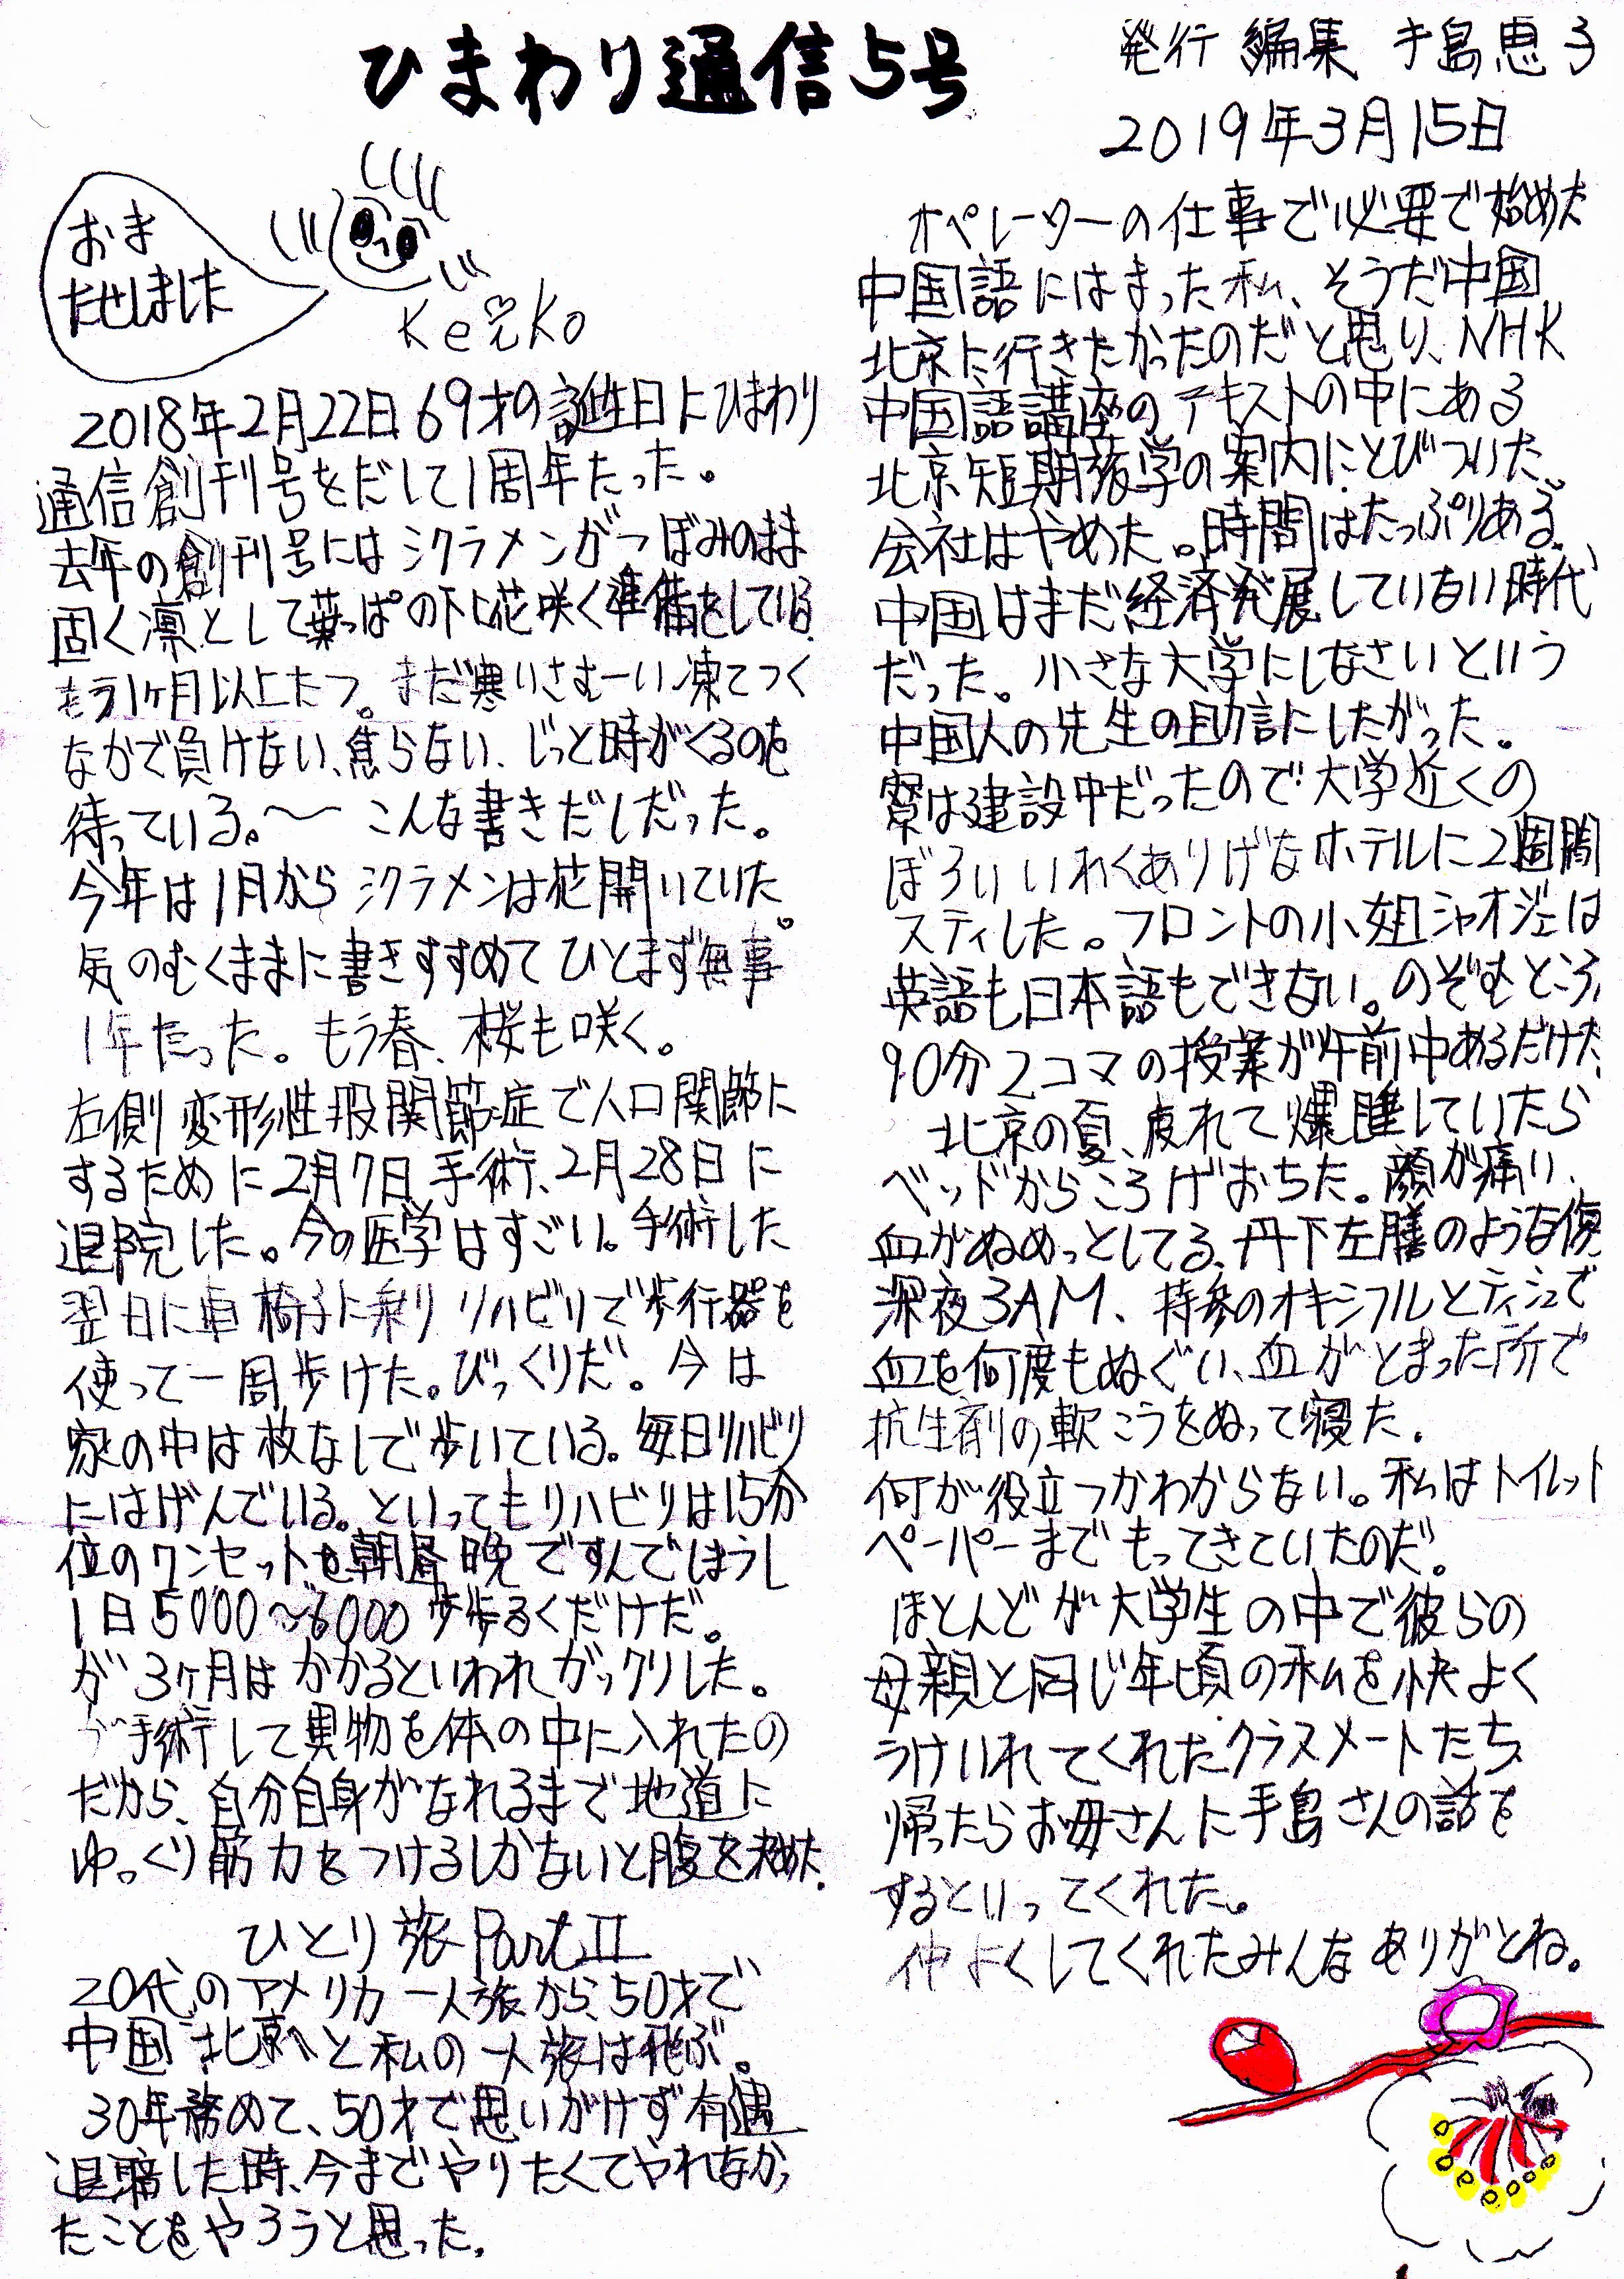 ひまわり通信5号
発行 編集 手島恵子
2019年3月15日
おま
たせしました
Keiko
2018年2月22日69才の誕生日にひまわり
通信創刊号をだして1周年たった。
去年の創刊号にはシクラメンがつぼみのまま
固く凛として葉っぱの下に花咲く準備をしている
もう1ヶ月以上たつ。まだ寒いさむーい凍てつく
なかで負けない、焦らない、じっと時がくるのを
待っている。〜こんな書きだしだった。
今年は1月からシクラメンは花開いていた。
気のむくままに書きすすめてひとまず無事
1年たった。もう春、桜も咲く。
右側変形性股関節症で人口関節に
するために2月7日手術、2月28日に
退院した。今の医学はすごい。手術した
翌日に車椅子に乗りリハビリで歩行器を
使って一周歩けた。びっくりだ。今は
家の中は杖なしで歩いている。毎日リハビリ
にはげんでいる。といってもリハビリは15分
位のワンセットを朝昼晩ですんでしまうし
1日5000〜6000歩歩るくだけだ。
が3ヶ月はかかるといわれガックリした。
が手術して異物を体の中に入れたの
だから、自分自身がなれるまで地道に
ゆっくり筋力をつけるしかないと腹を決めた.
ひとり旅PartⅡ
20代のアメリカ一人旅から、50才で
中国 北京へと私の一人旅は飛ぶ。
30年務めて、50才で思いがけず有遇
退職した時、今までやりたくてやれなかっ
たことをやろうと思った.
オペレーターの仕事で必要で始めた
中国語にはまった私、そうだ中国
北京に行きたかったのだと思い、NHK
中国語講座のテキストの中にある
北京短期旅学の案内にとびついた。
会社はやめた。時間はたっぷりある。
中国はまだ経済発展していない時代
だった。小さな大学にしなさいという
中国人の先生の助言にしたがった。
寮は建設中だったので大学近くの
ぼろいいわくありげなホテルに2週間
スティした。フロントの小姐シャオジェは
英語も日本語もできない。のぞむところ
90分2コマの授業が午前中あるだけだ
北京の夏、疲れて爆睡していたら
ベッドからころげおちた。顔が痛い、
血がぬめっとしてる、丹下左膳のような傷
深夜3AM、持参のオキシフルとティシュで
血を何度もぬぐい、血がとまった所で
抗生剤の軟こうをぬって寝た.
何が役立つかわからない。私はトイレット
ペーパーまでもってきていたのだ。
ほとんどが大学生の中で彼らの
母親と同じ年頃の私を快よく
うけいれてくれたクラスメートたち
帰ったらお母さんに手島さんの話を
するといってくれた。
仲よくしてくれたみんなありがとね。